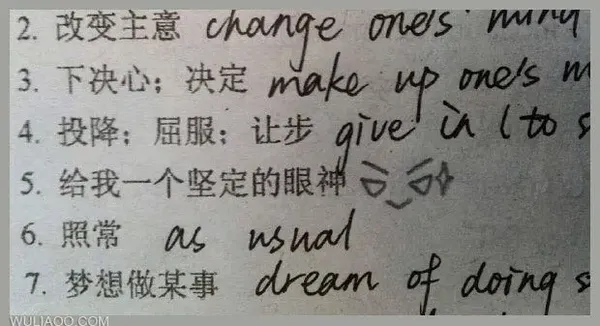 2. 改变主意 change one's mind
3. 下决心；决定 make up one's m
4. 投降；屈服；让步 give in (to s
5. 给我一个坚定的眼神
6. 照常 as usual
7. 梦想做某事 dream of doing s
WULIAOO.COM